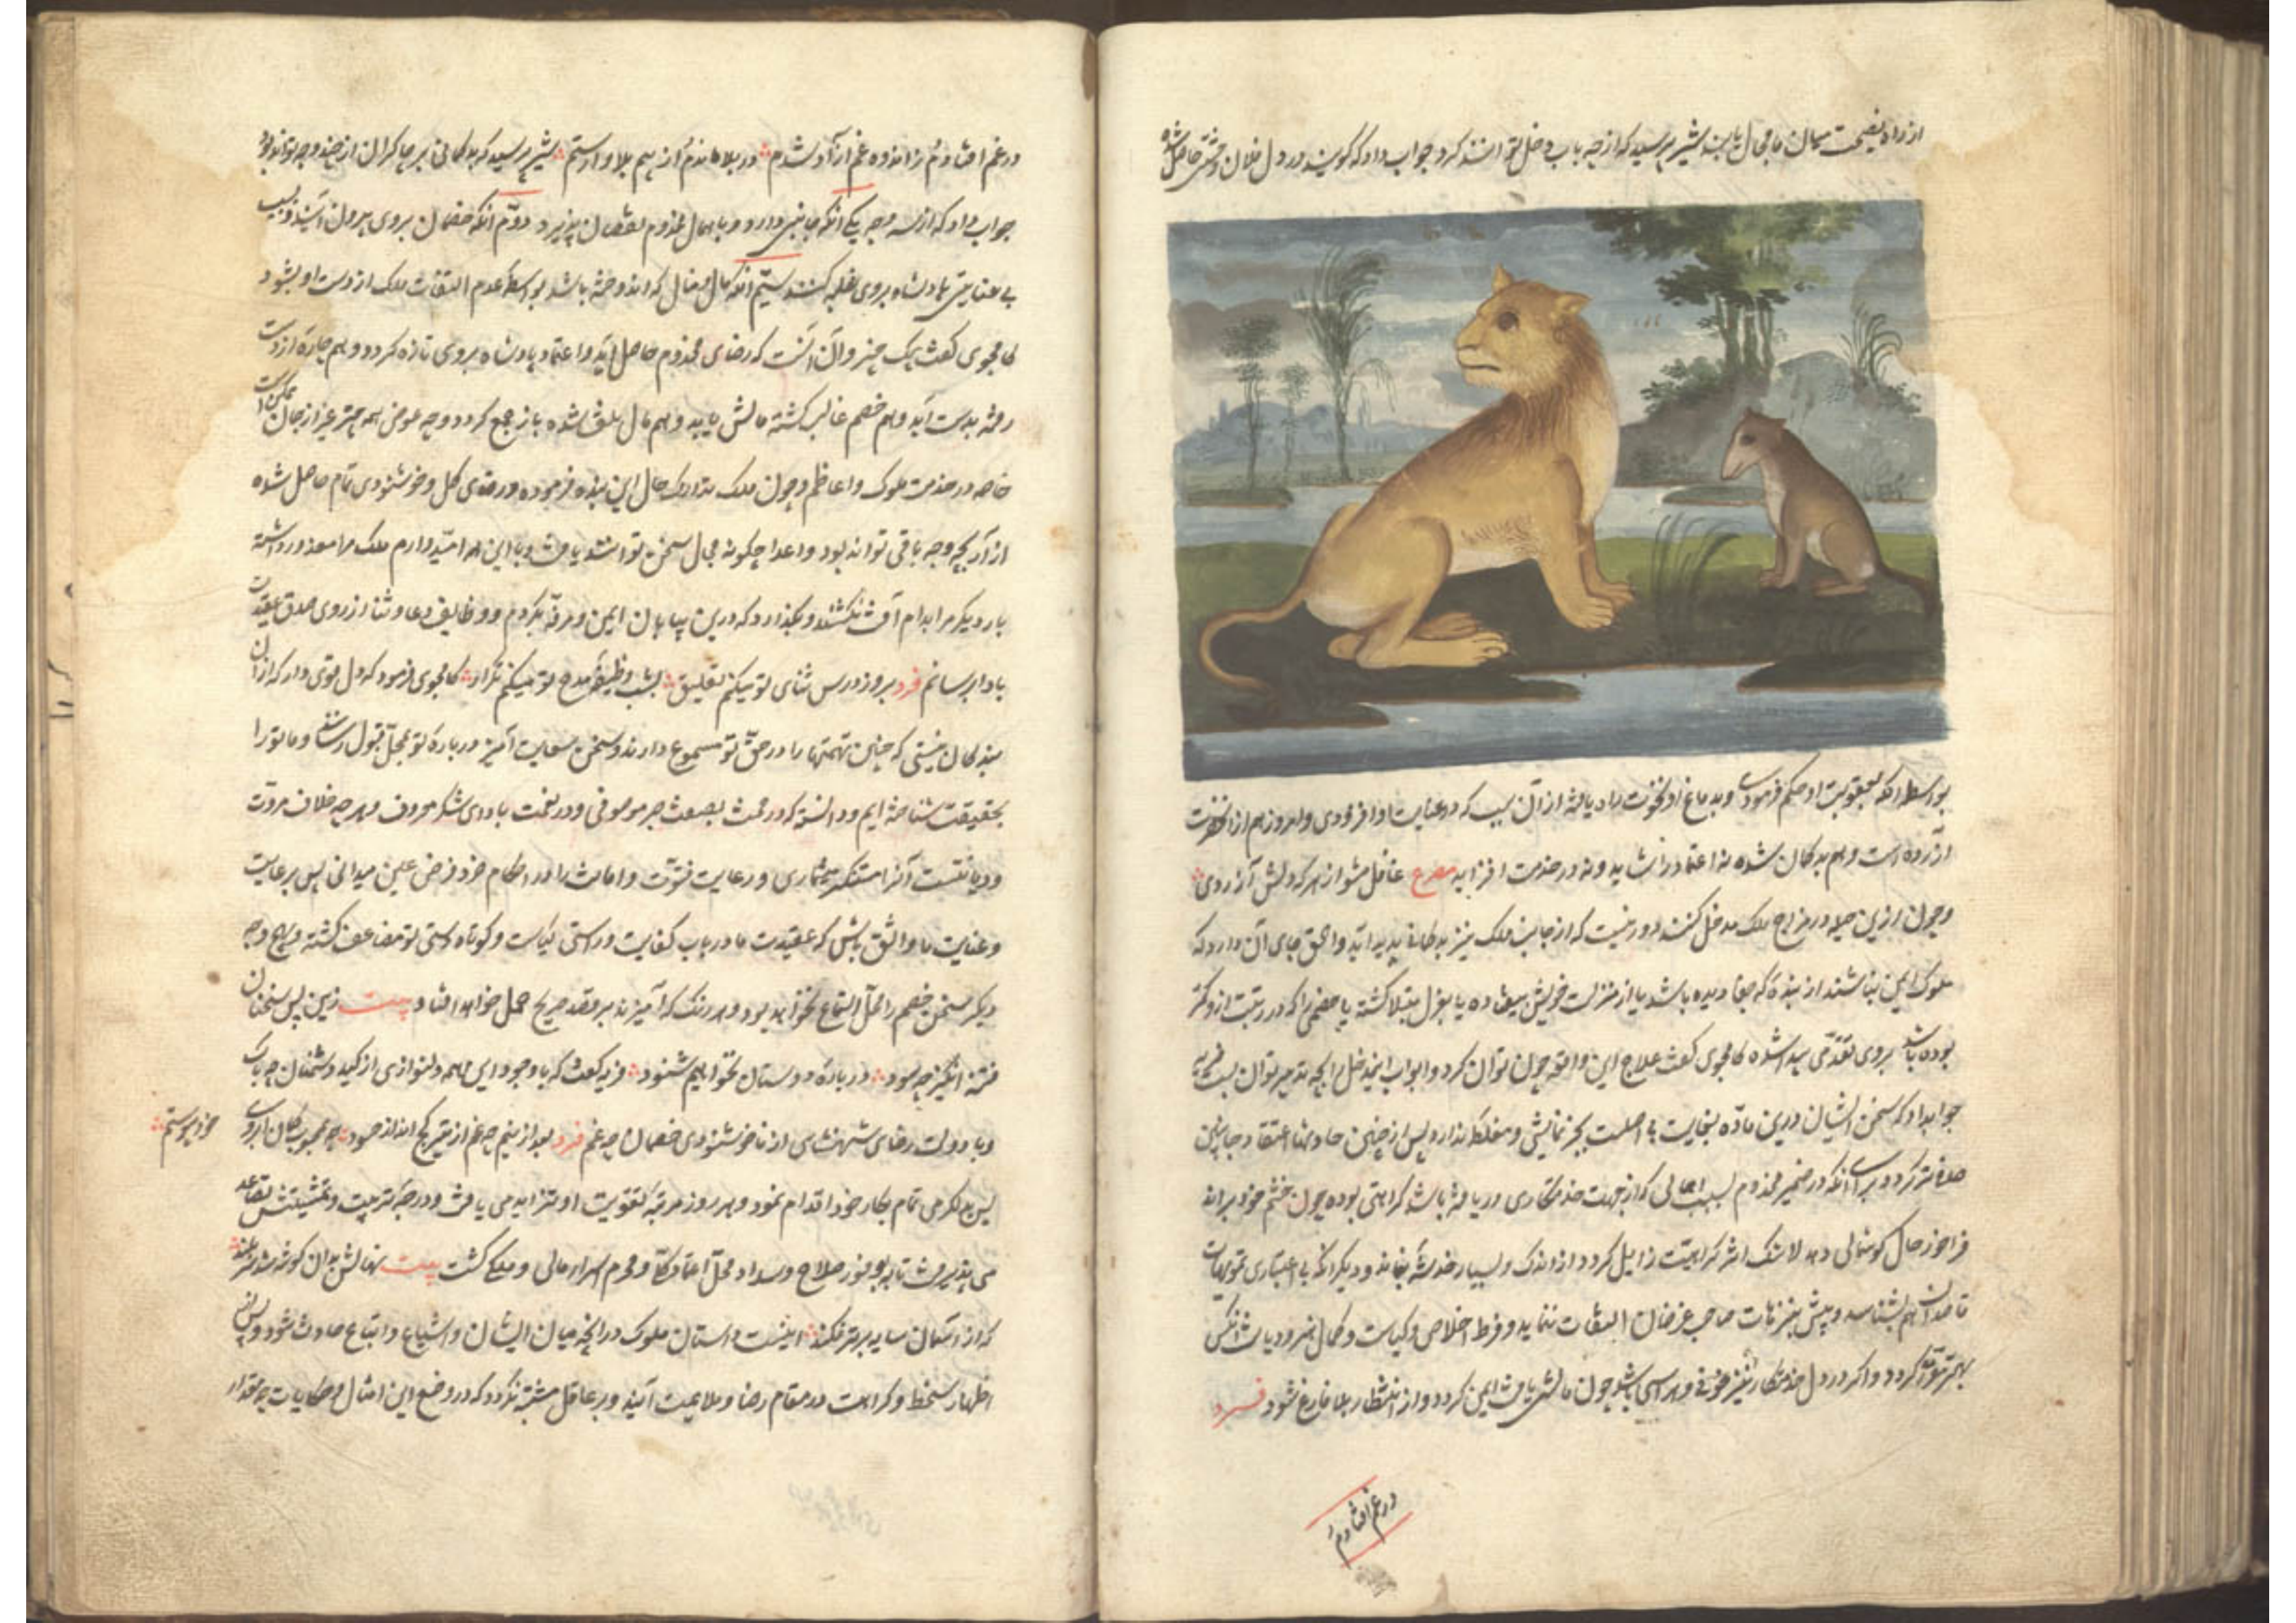 از راه نصیحت میان ما مجال یابند شیر پرسید که از چه باب دخل توانند کرد جواب داد که گویند در دل فلان وحشتی حاصل شده
بواسطه آنکه بعقوبت او حکم فرمودی و بدماغ او نخوت راه یافته از آن سبب که در عنایت او افزودی و امروز هم از آن حضرت
آزرده است و هم بدکمان شده نه اعتماد را شاید و نه در خدمت افزاید مصرع غافل مشو از هر که دلش آزردی
و چون ازین حیله در مزاج ملک مدخل کنند دور نیست که از جانب ملک نیز بدکمانی پدید آید و الحق جای آن دارد که
ملوک ایمن نباشند از بنده که جفا دیده باشد یا از منزلت خویش بیفتاده یا بعزل مبتلا کشته یا خصمی را که در رتبت ازو کمتر
بوده باشد بروی تقدمی پیدا شده کامجوی کفت علاج این واقعه چون توان کرد و ابواب این دخل را بچه تدبیر توان بست فریسه
جواب داد که سخن ایشان درین ماده بغایت بی اصلست بجز نمایشی و مغلطه ندارد پس از چنین حادثها اعتقاد جانبین
صافتر کردد برای آنکه در ضمیر مخدوم بسبب اهمالی که از جهت خدمتکاری در یافته باشد کراهتی بوده چون خشم خود براند
فراخور حال کوشمالی دهد لاشک اثر کراهیت زایل کردد از اندک و بسیار خدشه نماند و دیکر آنکه بی اعتباری تمویهات
قاصدان هم بشناسد و بیش بترهات صاحب غرضان التفات ننماید و فرط اخلاص و کیاست و کمال هنر و دیانت آنکس
بهتر مقرر کردد و اکر در دل خدمتکار نیز خوفی و هراسی باشد چون مالش یافت ایمن کردد و از انتظار بلا فارغ شود فرد
در غم افتادم
در غم افتادم ز اندوه غم آزاد شدم در بلا ماندم و از بیم بلا وارستم شیر پرسید که بدکمانی بر چاکران از چند وجه تواند بود
جواب داد که از سه وجه یکی آنکه جاهی دارد و باهمال مخدوم نقصان پذیرد دوم آنکه خصمان بروی بیرون آیند و بسبب
بی عنایتی پادشاه بروی غلبه کنند سیم آنکه مال و منال که اندوخته باشد بواسطه عدم التفات ملک از دست او بشود
کامجوی کفت بیک چیز و آن آنست که رضای مخدوم حاصل آید و اعتماد پادشاه بروی تازه کردد و هم جاه از دست
رفته بدست آید و هم خصم غالب کشته مالش یابد و هم مال تلف شده باز جمع کردد و چه عوض همه چیز غیر از جان ممکن است
خاصه در خدمت ملوک و اعاظم و چون ملک تدارک حال این بنده فرموده و رضای کل و خوشنودی تمام حاصل شده
آزار بچه وجه باقی تواند بود و اعدا چکونه مجال سخن توانند یافت و با این همه امیدوارم ملک مرا معذور داشته
بار دیکر مرا بدام آفت نکشد و بکذارد که درین بیابان ایمن و مرفه بکردم و وظایف دعا و ثنا از روی صدق عقیدت
بادا برسانم فرد بروز درس ثنای تو میکنم تعلیق بشب وظیفه مدح تو میکنم تکرار کامجوی فرمود که دل قوی دار که از آن
بندکان نیستی که چنین تهمتها را در حق تو مسموع دارند و سخن سعایت آمیز در باره تو بمحل قبول رسانند و ما تو را
بحقیقت شناخته ایم و دانسته که در محنت بصفت صبر موصوفی و در نعمت بادای شکر معروف و هر چه خلاف مروت
و دیانتست آنرا مستنکر میشماری و رعایت فتوت و امانت را در احکام خرد فرض عین میدانی پس بر عایت
و عنایت ما واثق باش که عقیدت ما در باب کفایت و راستی کیاست و کوتاه دستی تو مضاعف کشته و بهیچ وجه
دیکر سخن خصم را محل استماع نخواهد بود و هر رنک که آمیزند بر قصد صریح حمل خواهد افتاد بیت زین پس سخنان
فتنه انکیز چه سود در باره دوستان نخواهیم شنود فریسه کفت که با وجود این همه دلنوازی از کید دشمنان چه باک
و با دولت رضای شهنشاهی از ناخوشنودی خصمان چه غم فرد بعد ازینم چه غم از تیر کج انداز حسود چو بمحبوب کمان ابروی
خود پیوستم
پس بدلکرمی تمام بکار خود اقدام نمود و هر روز مرتبه تقویت او تزاید می یافت و درجه تربیت و تمشیتش تصاعد
می پذیرفت تا بوفور صلاح و سداد محل اعتماد کلی و محرم اسرار مالی و ملکی کشت بیت نهالش بدان کونه شد سر بلند
که از آسمان سایه برتر فکند اینست داستان ملوک در آنچه میان ایشان و اشیاع و اتباع حادث شود و پس از
اظهار سخط و کراهت در مقام رضا و ملایمت آیند و بر عاقل مشتبه نکردد که در وضع این امثال و حکایات چه مقدار